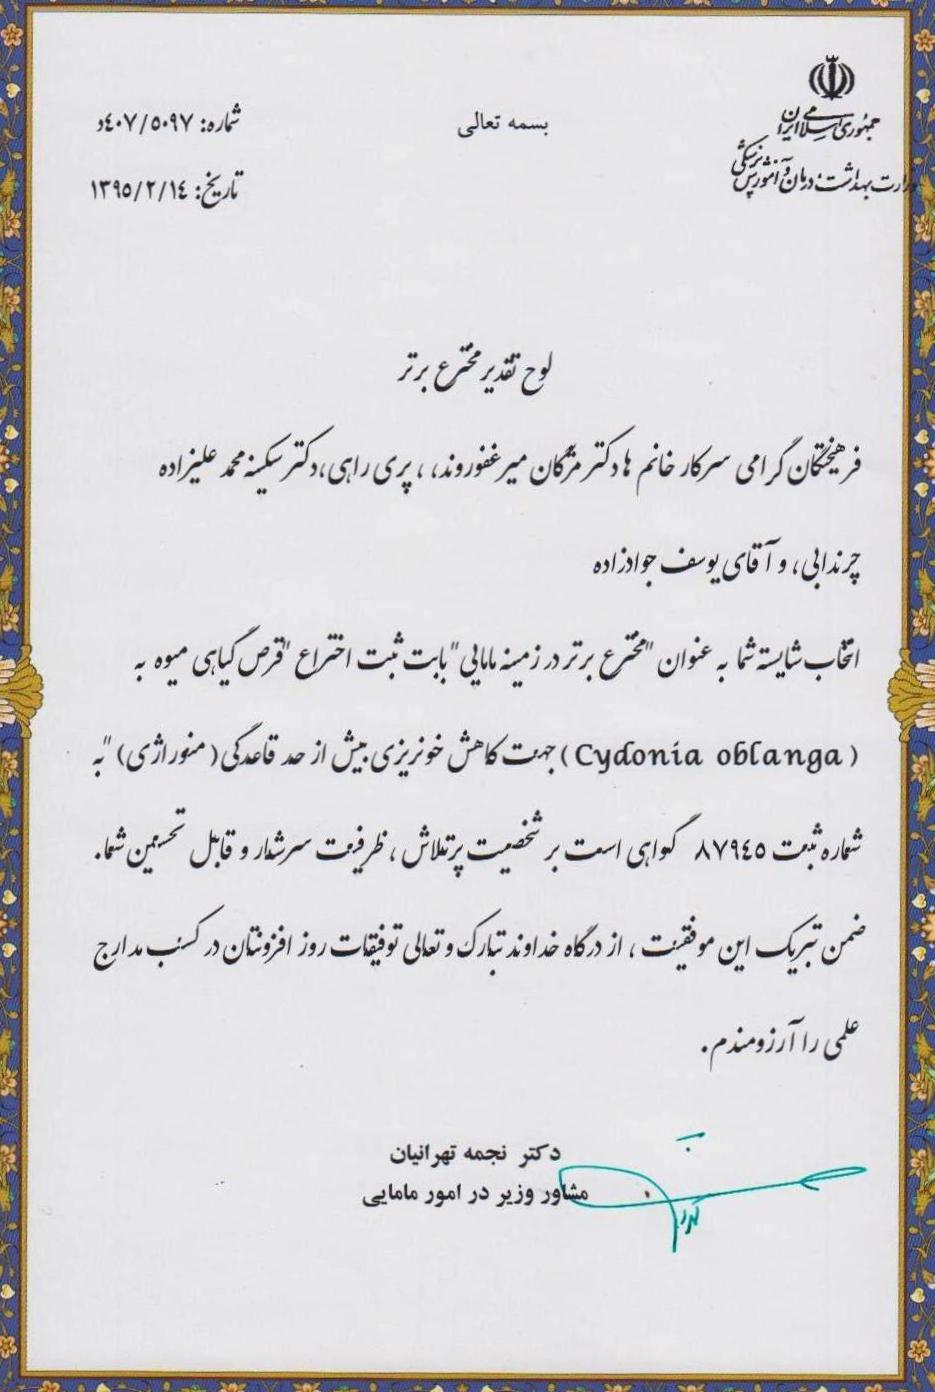 جمهوری اسلامی ایران
وزارت بهداشت درمان و آموزش پزشکی
بسمه تعالی
شماره: ۴۰۷/۵۰۹۷د
تاریخ: ۱۳۹۵/۲/۱۴
لوح تقدیر مخترع برتر
فرهیختگان گرامی سرکار خانم ها دکتر مژگان میرغفوروند، ، پری راهی، دکتر سکینه محمد علیزاده
چرندابی، و آقای یوسف جوادزاده
انتخاب شایسته شما به عنوان "مخترع برتر در زمینه مامایی" بابت ثبت اختراع "قرص گیاهی میوه به
(Cydonia oblanga) جهت کاهش خونریزی بیش از حد قاعدگی (منوراژی)" به
شماره ثبت ۸۷۹۴۵ گواهی است بر شخصیت پرتلاش، ظرفیت سرشار و قابل تحسین شما.
ضمن تبریک این موفقیت، از درگاه خداوند تبارک و تعالی توفیقات روز افزونتان در کسب مدارج
علمی را آرزومندم.
دکتر نجمه تهرانیان
مشاور وزیر در امور مامایی